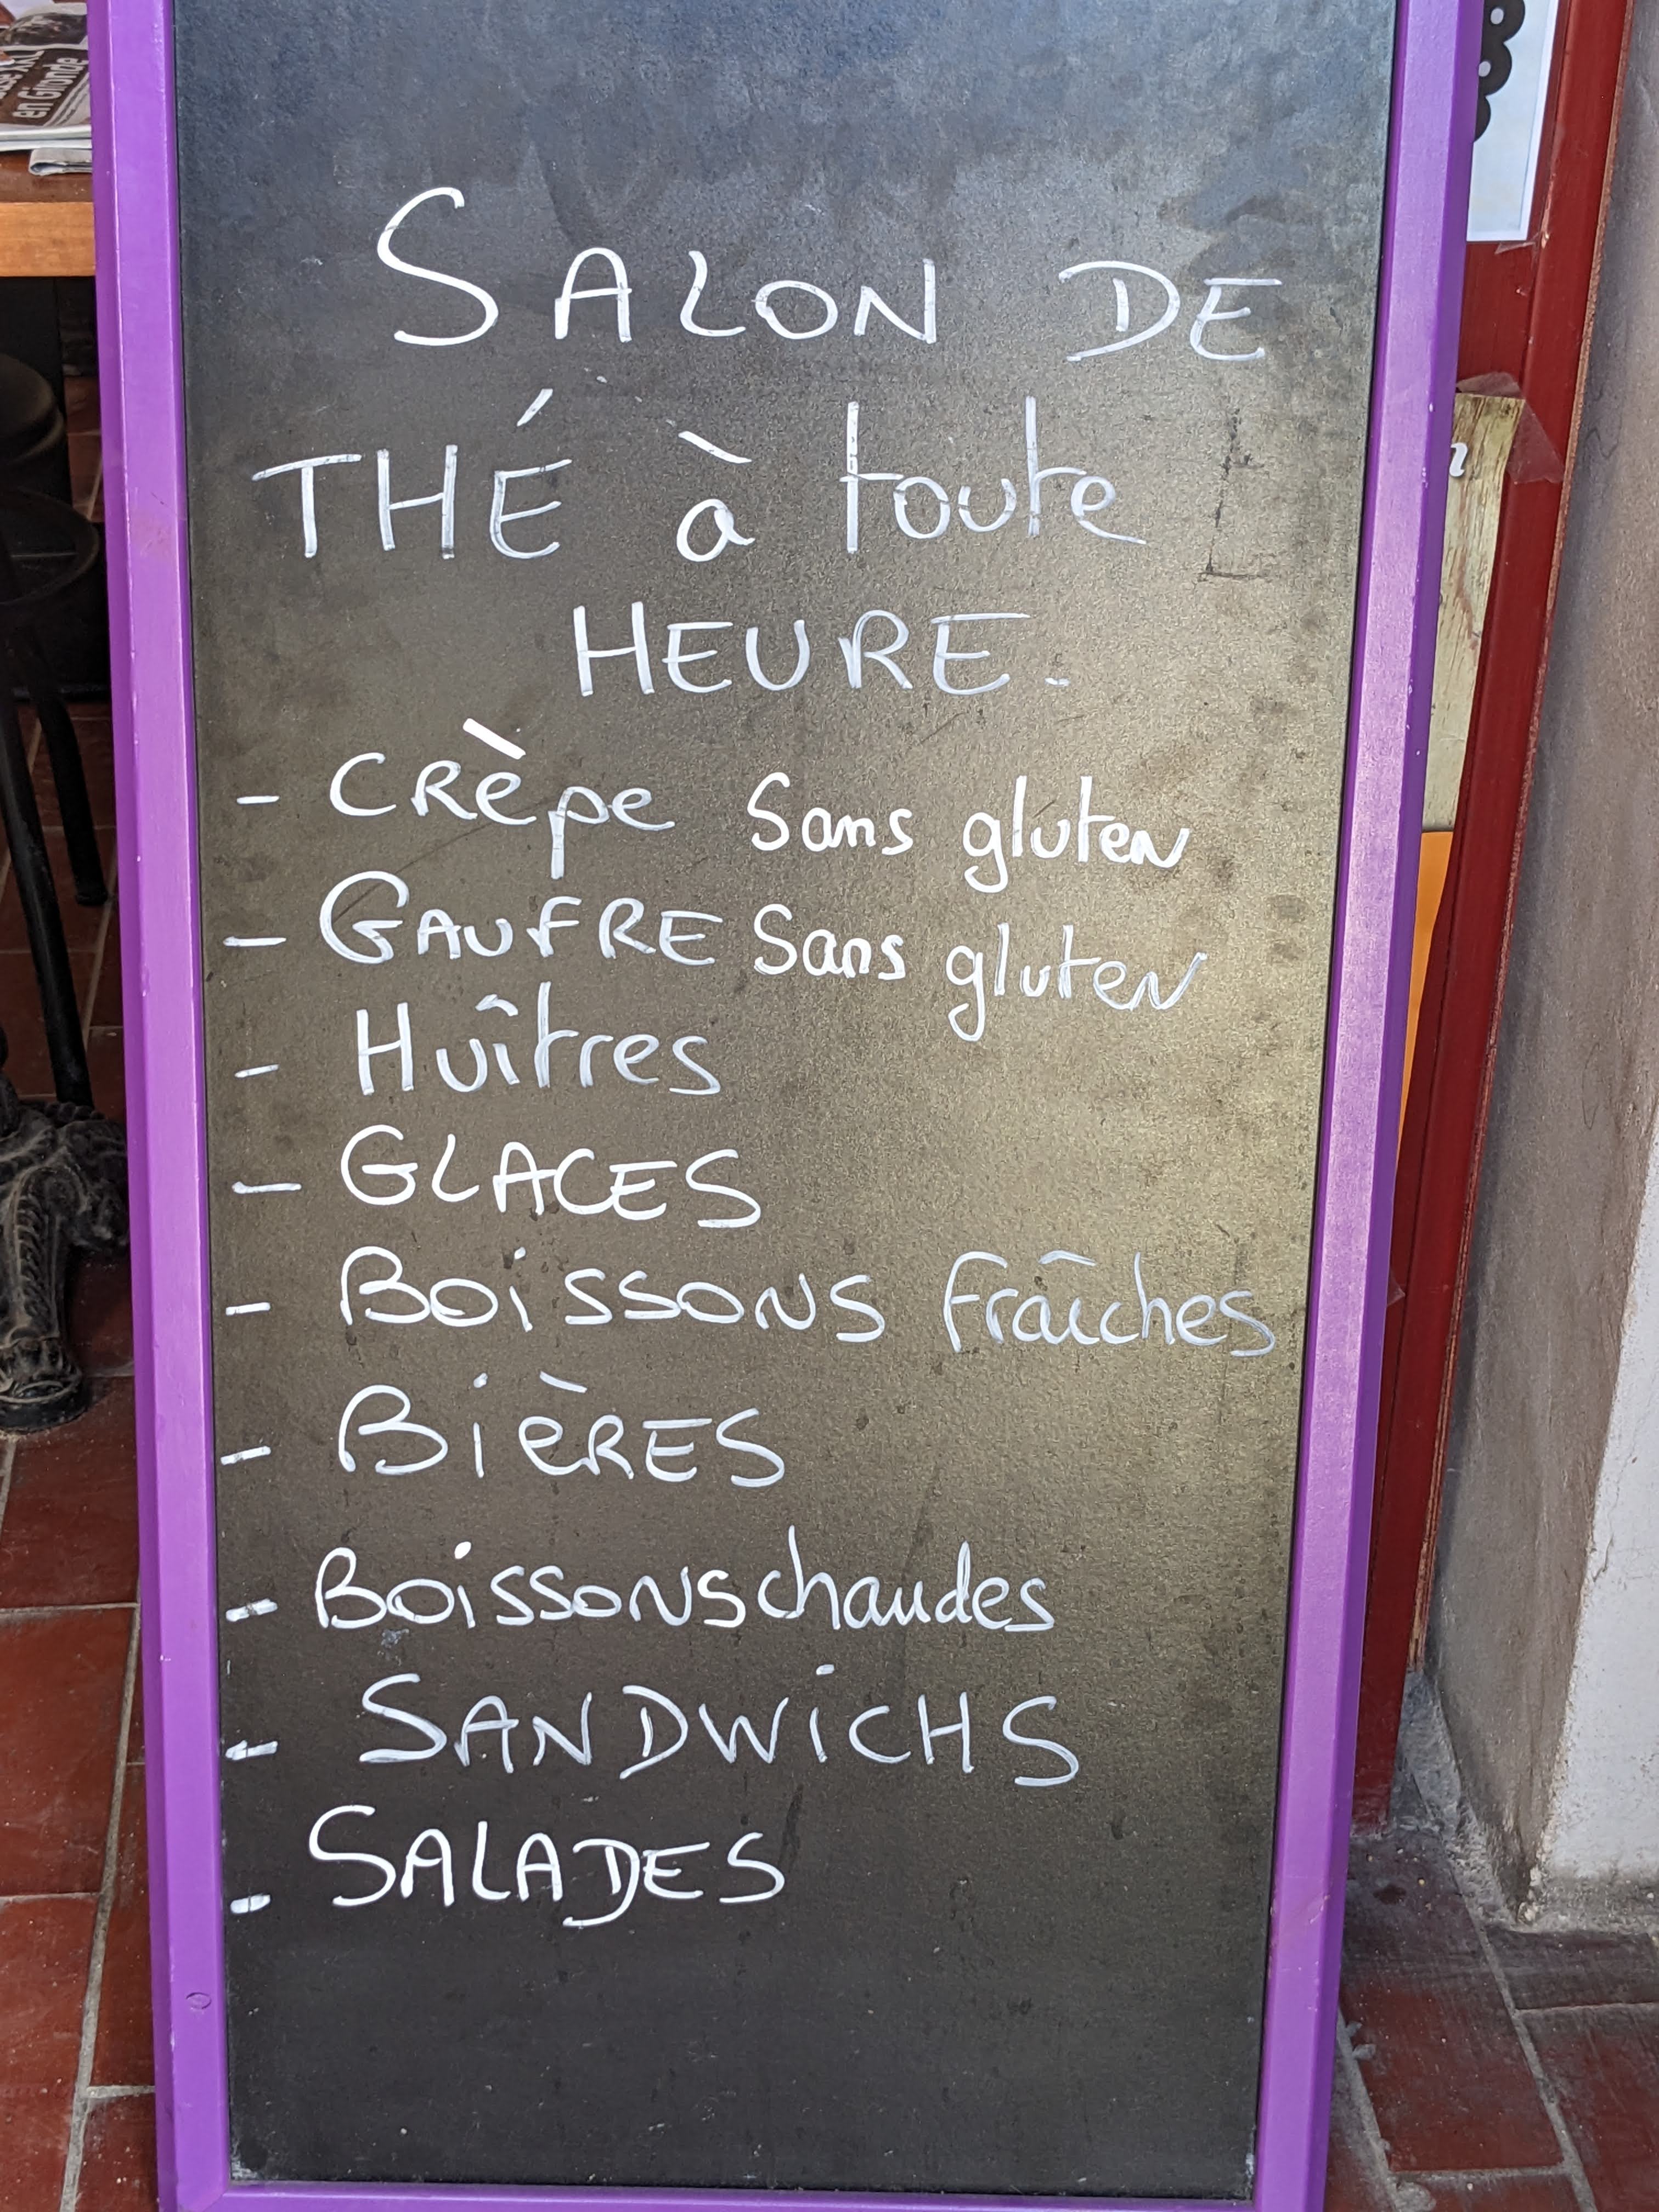 en Gironde
SALON DE
THÉ à toute
HEURE.
- CRèpe Sans gluten
- GAUFRE Sans gluten
- Huîtres
- GLACES
- BOiSSONS Fraîches
- BièRES
- BOiSSONS chaudes
- SANDWiCHS
- SALADES